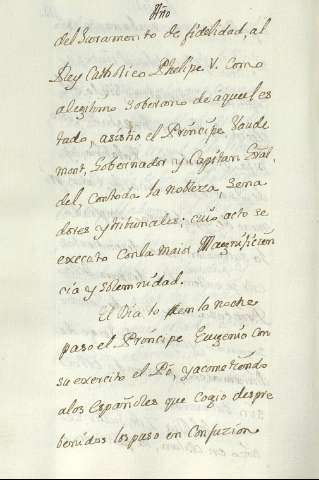 Año
del Juramento de fidelidad, al
Rey Catholico Phelipe V. Como
a legitimo Soberano de aquel es
tado, asistio el Principe Vaude
mont, Gobernador y Capitan Gral.
del, con toda la nobleza, Sena
dores y tribunales; cuio acto se
executo con la maior Magnificien
cia y solemnidad.
El Dia 10 en la noche
paso el Principe Eugenio con
su exercito el Pó, y acometiendo
a los Españoles que cogio despre
benidos los puso en Confuzion